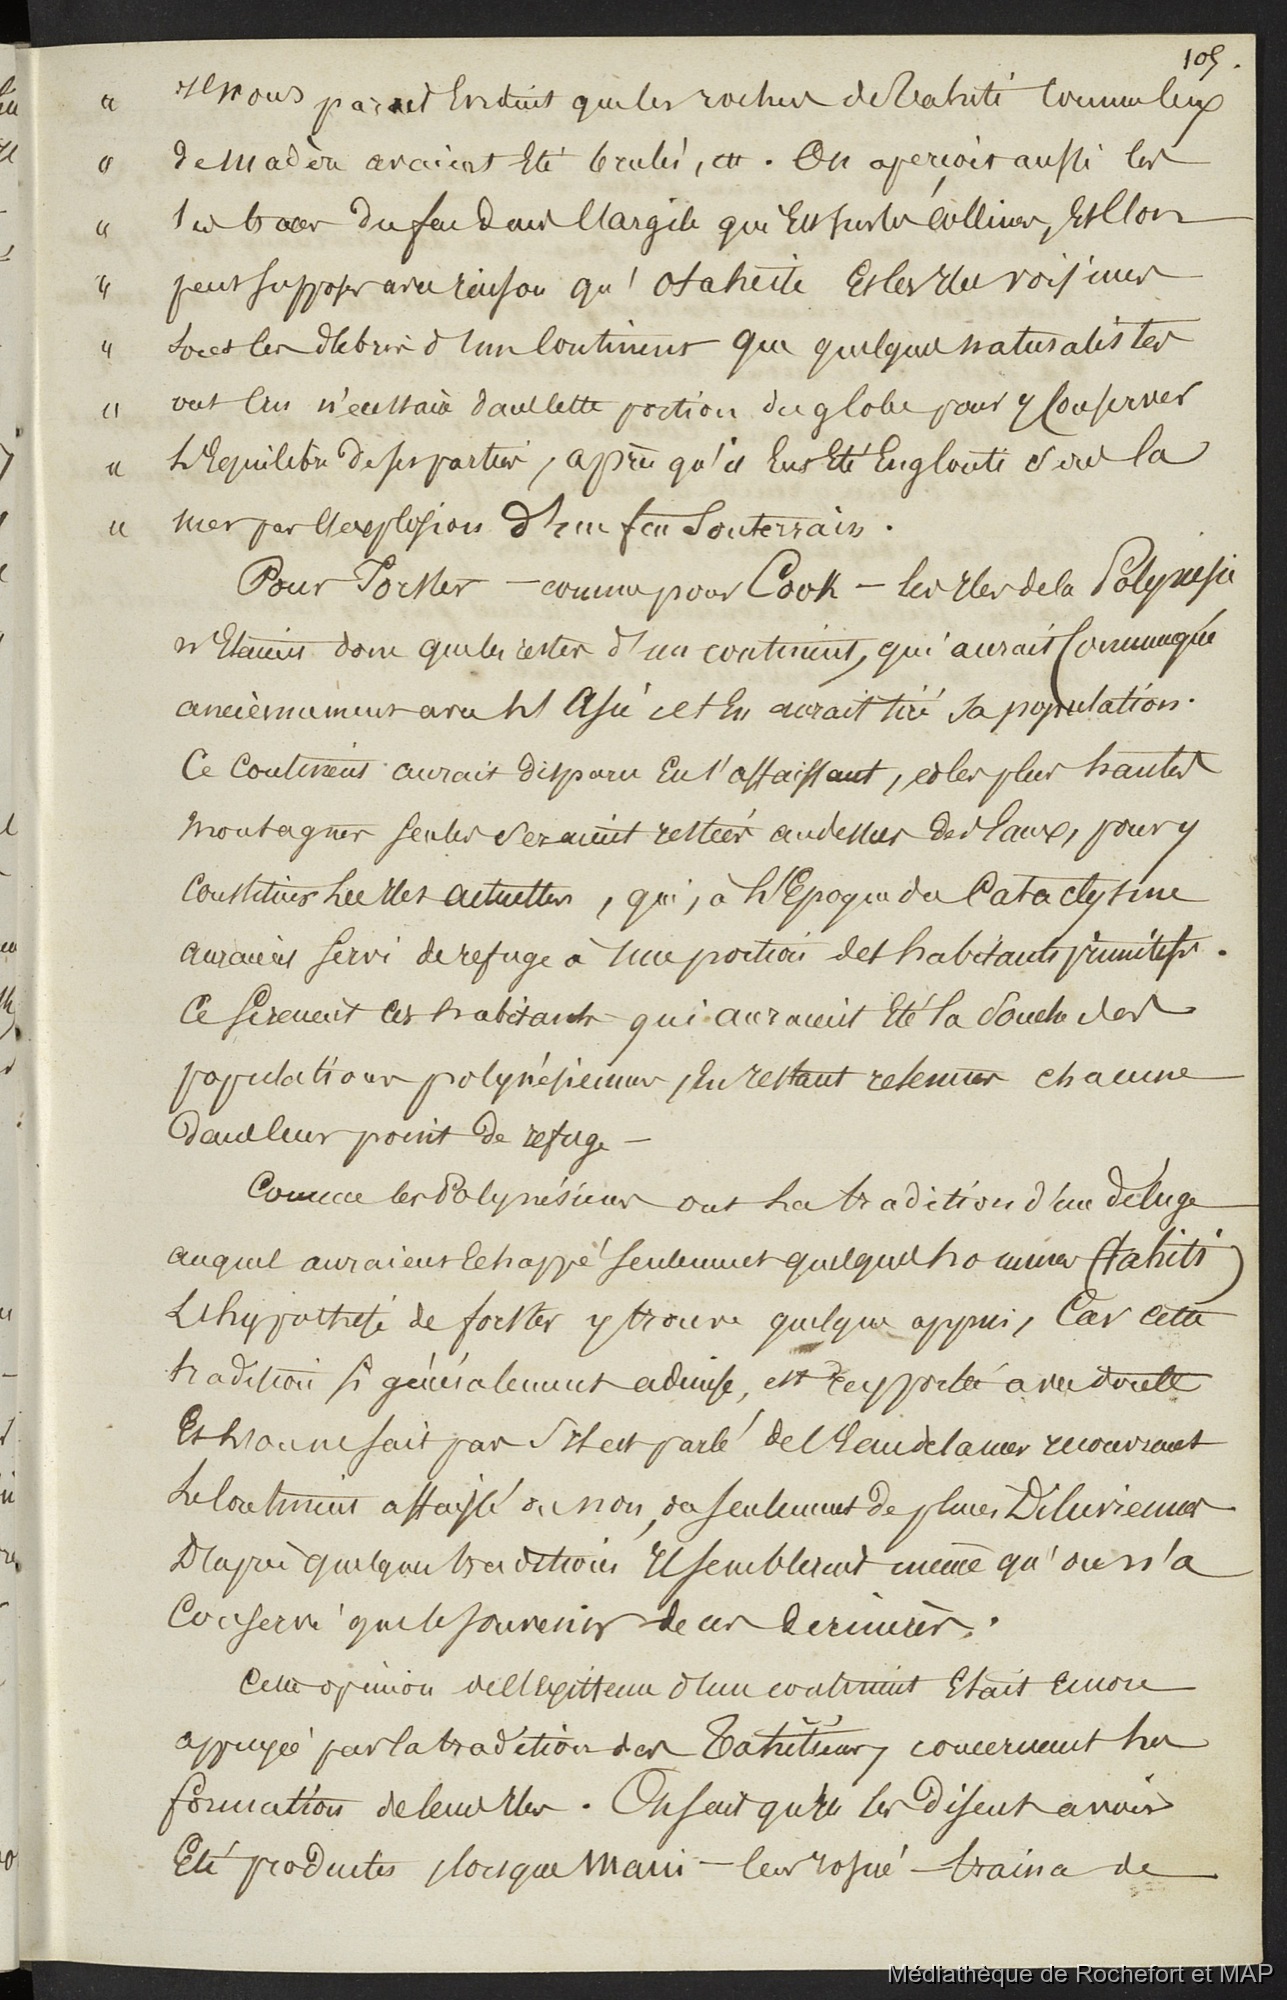 105.
" Il nous parait Evident que les rochers de Tahiti Comme Ceux
" de Madère avaient Eté brulés, etc. On aperçoit aussi les
" les traces du feu dans l'argile qui Est sur les Collines, Et l'on
" peut supposer avec raison qu'Otaheite Et les Iles voisines
" sont les débris d'un Continent que quelques naturalistes
" ont Cru nécessaire dans cette portion du globe pour y Conserver
" l'Equilibre de ses parties, après qu'il Eut Eté Englouti dans la
" mer par l'explosion d'un feu Souterrain.
Pour Forster — comme pour Cook — les Iles de la Polynésie
n'Etaient donc que les restes d'un continent, qui aurait Communiqué
anciennement avec l'Asie et En aurait tiré sa population.
Ce Continent aurait disparu En s'affaissant, et les plus hautes
montagnes seules seraient restées au dessus des Eaux, pour y
Constituer les Iles actuelles, qui, à l'Epoque du Cataclysme
auraient servi de refuge à une portion des habitants primitifs.
Ce seraient ces habitants qui auraient Eté la Souche des
populations polynésiennes, En restant retenues chacune
dans leur point de refuge —
Comme les Polynésiens ont la tradition d'un déluge
auquel auraient Echappé seulement quelques hommes (tahiti)
L'hypothèse de forster y trouve quelque appui, Car cette
tradition si généralement admise, est rapportée avec doute
Et l'on ne sait pas s'Il est parlé de l'Eau de la mer recouvrant
le Continent affaissé ou non, ou seulement de pluies Diluviennes
D'après quelques traditions Il semblerait même qu'on n'a
Conservé que le souvenir de ces dernières.
Cette opinion de l'Existence d'un continent Etait Encore
appuyée par la tradition des Tahitiens, concernant la
formation de leurs Iles. On sait qu'Ils les Disent avoir
Eté produites, lorsque Maui — leur — traina de